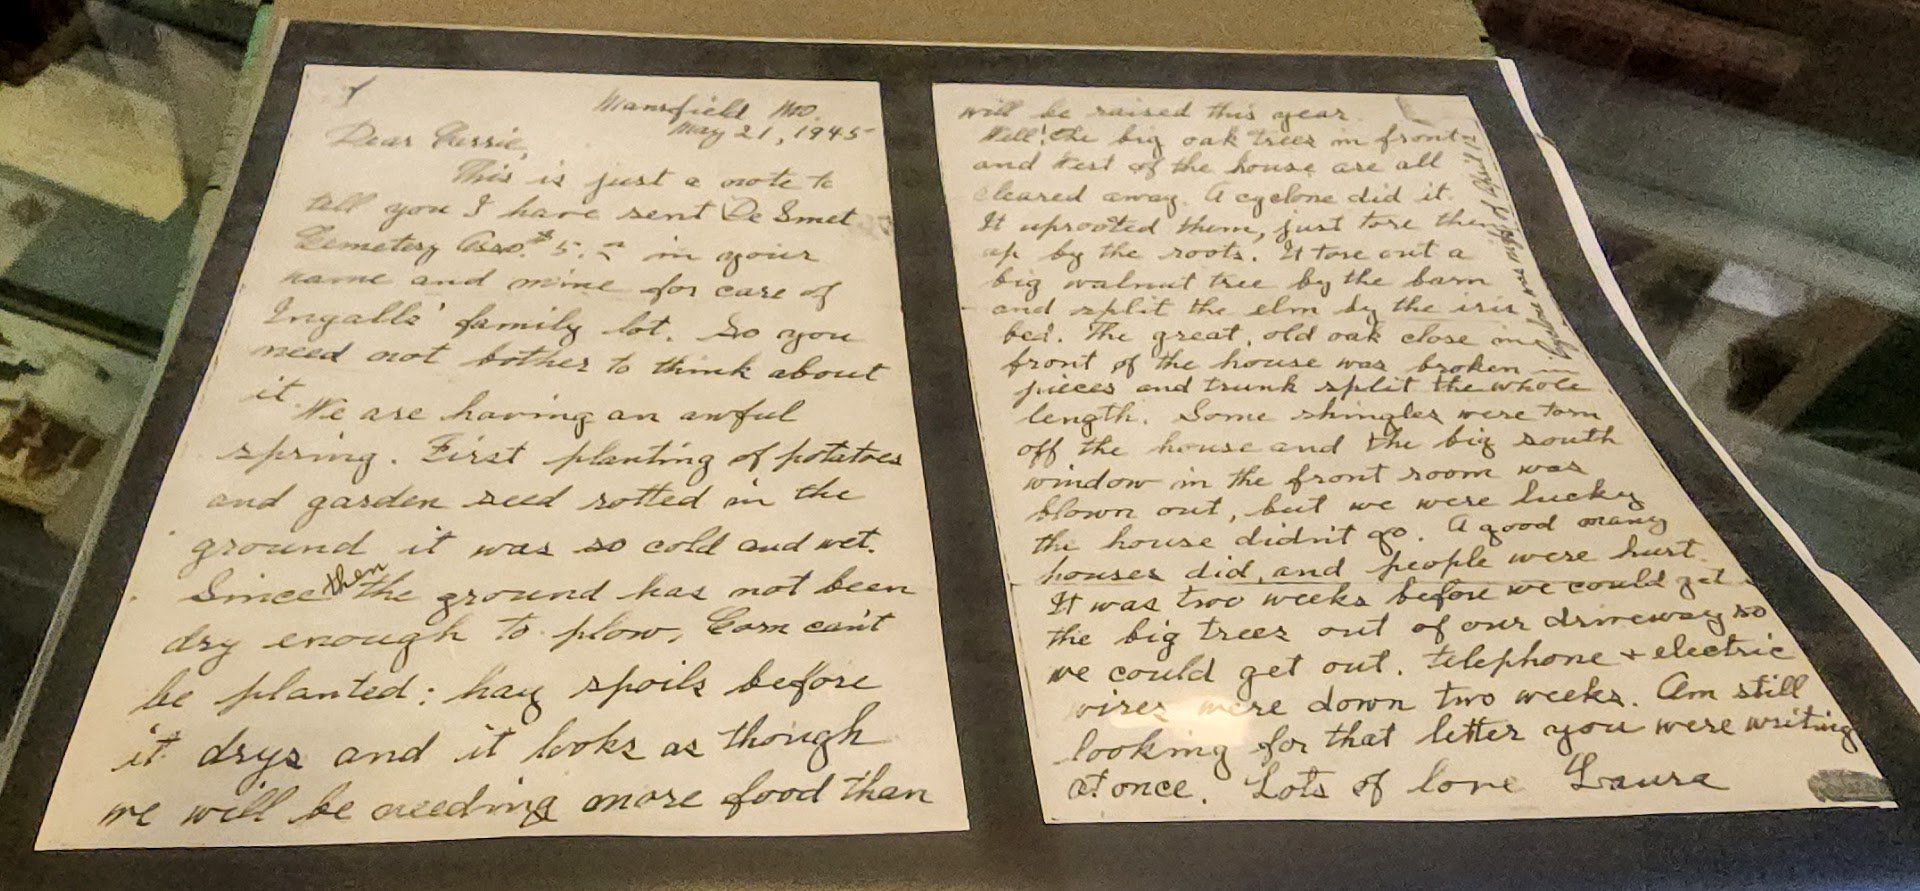 Mansfield Mo.
May 21, 1945
Dear
This is just a note to
tell you I have sent De Smet
Cemetery Asso. $5.= in your
name and mine for care of
Ingalls' family lot. So you
need not bother to think about
it.
We are having an awful
spring. First planting of potatoes
and garden seed rotted in the
ground it was so cold and wet.
Since then the ground has not been
dry enough to plow, Corn can't
be planted: hay spoils before
it drys and it looks as though
we will be needing more food than
will be raised this year.
Well! the big oak trees in front
and West of the house are all
cleared away. A cyclone did it.
It uprooted them, just tore them
up by the roots. It tore out a
big walnut tree by the barn
and split the elm by the iris
bed. The great, old oak close in
front of the house was broken in
pieces and trunk split the whole
length. Some shingles were torn
off the house and the big south
window in the front room was
blown out, but we were lucky
the house didn't go. A good many
houses did, and people were hurt.
It was two weeks before we could get
the big trees out of our driveway so
we could get out. Telephone + electric
wires were down two weeks. Am still
looking for that letter you were writing
at once. Lots of love Laura
Cyclone was night of April 12